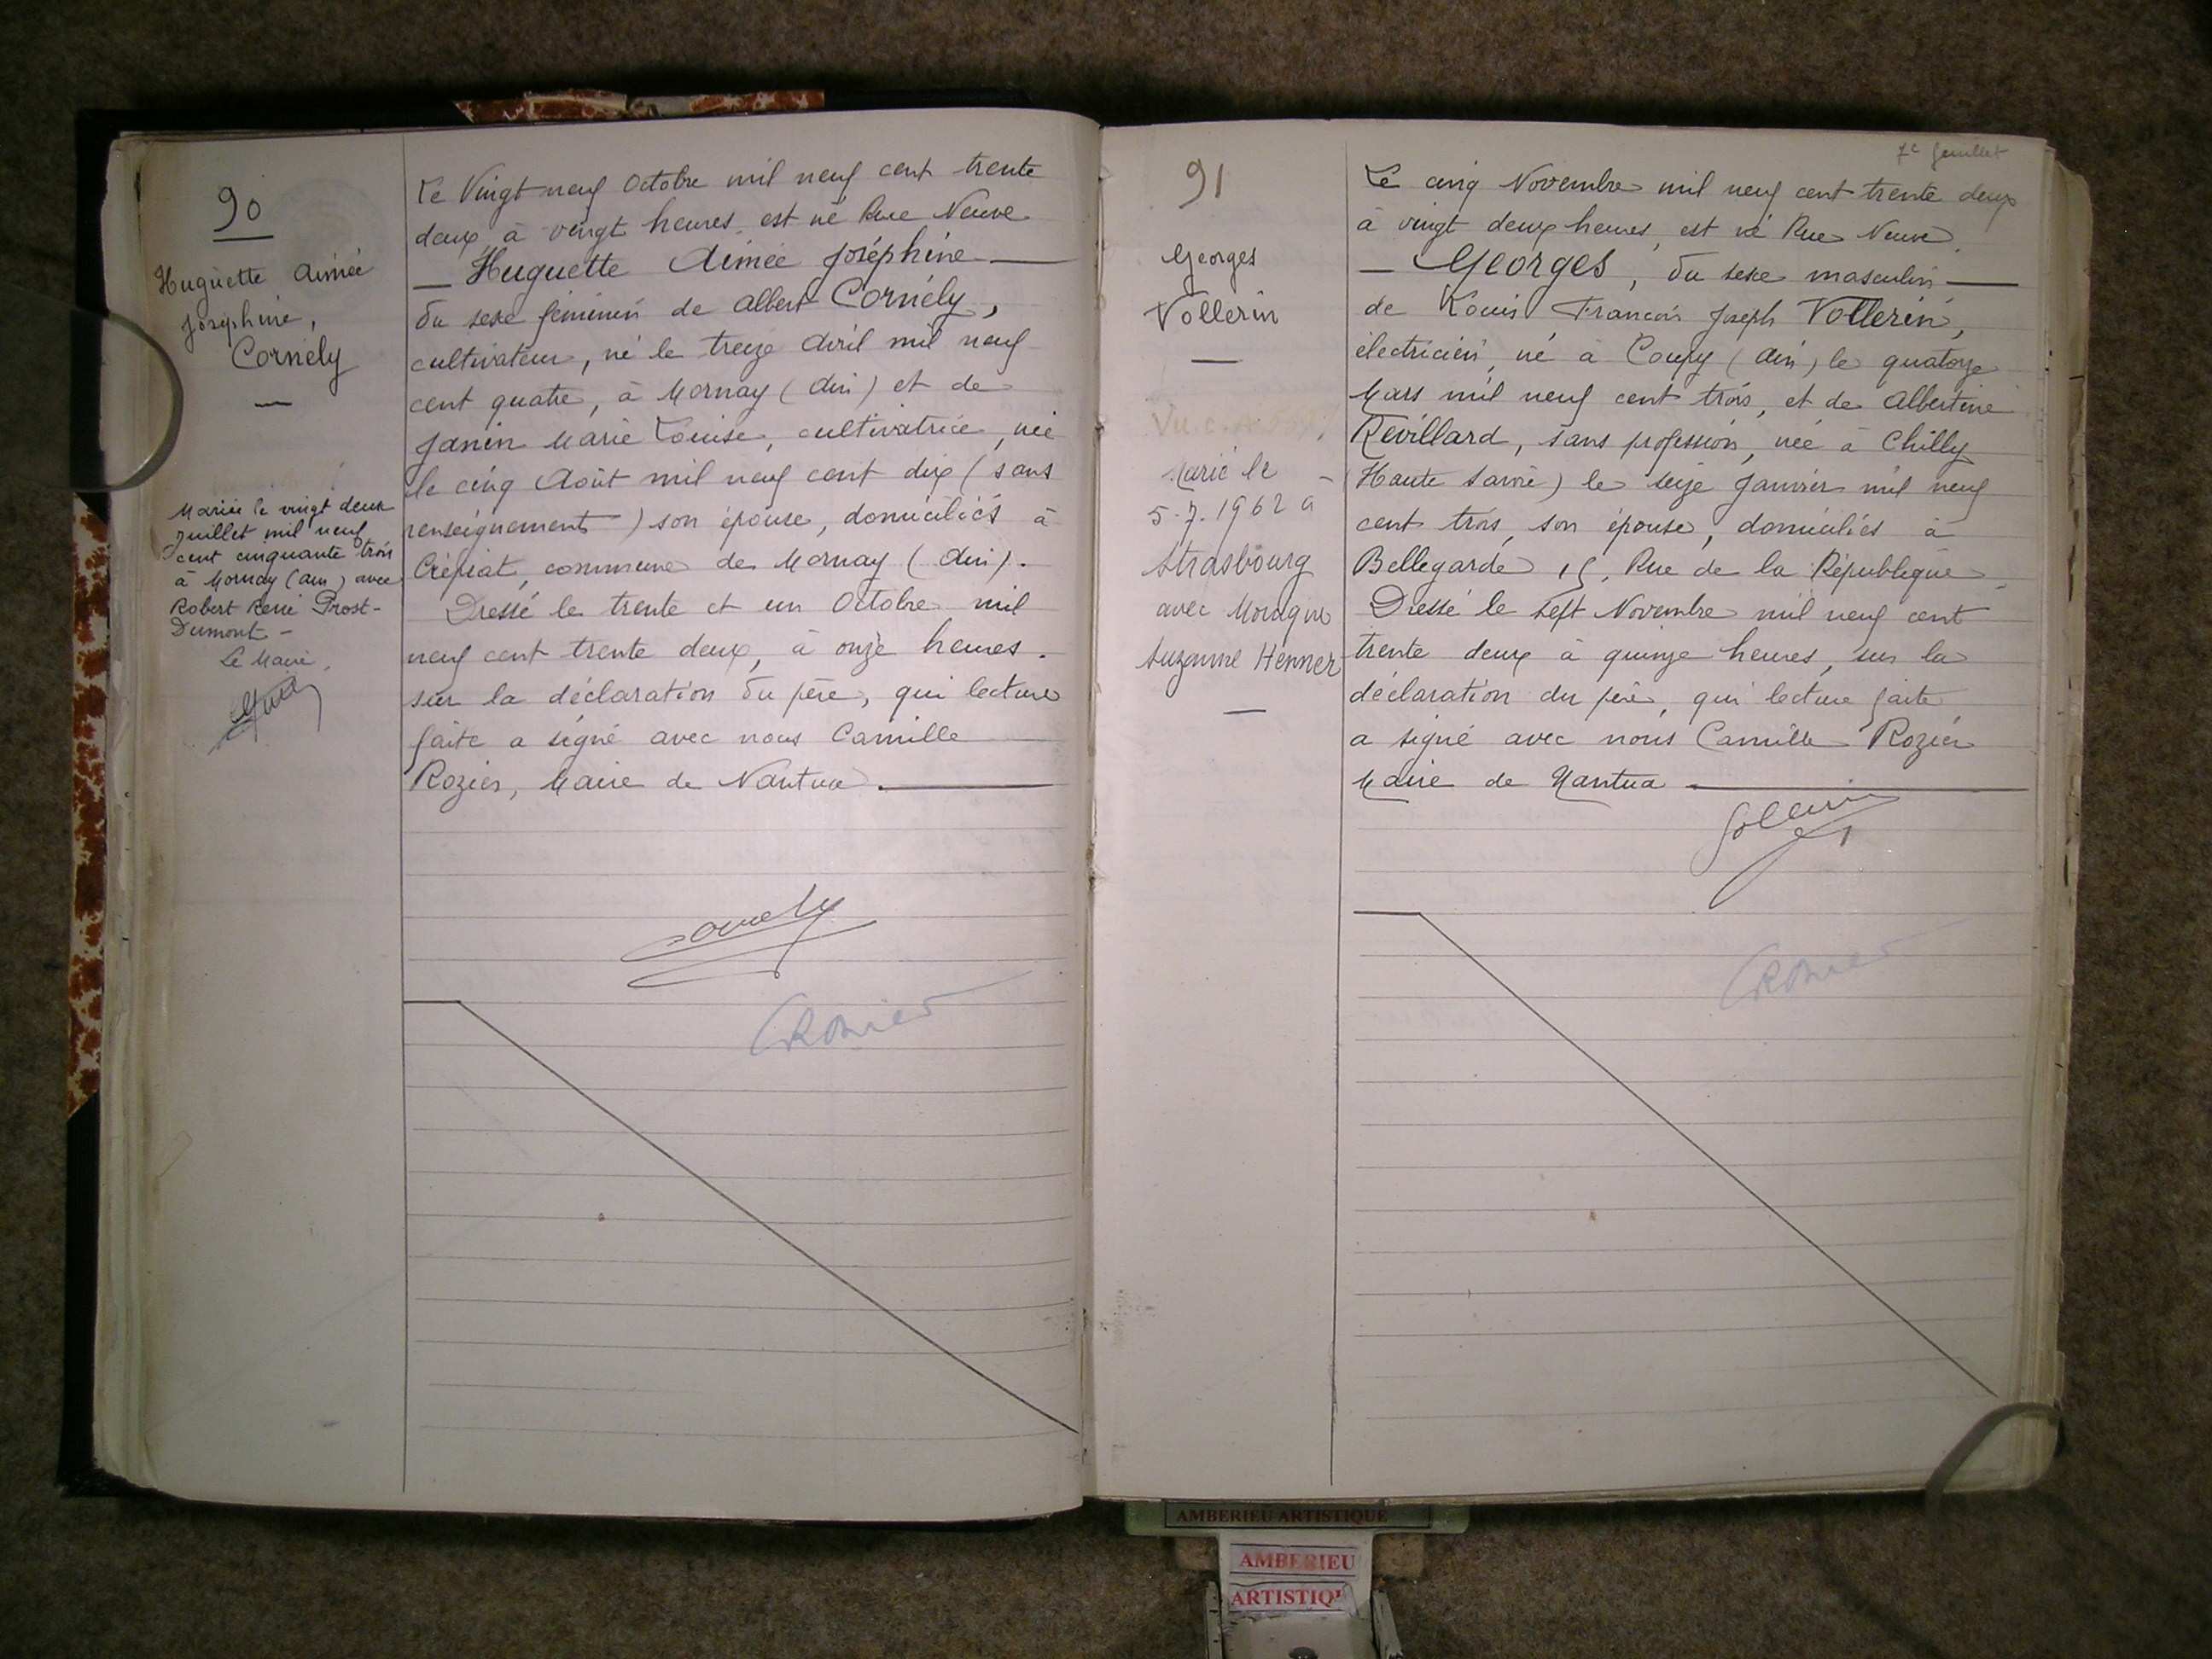 90
Huguette Aimée
Joséphine,
Cornély
Mariée le vingt deux
juillet mil neuf
cent cinquante trois
à Mornay (Ain) avec
Robert René Prost-
Dumont -
Le Maire,
Le Vingt neuf Octobre mil neuf cent trente
deux, à vingt heures, est né Rue Neuve
— Huguette Aimée Joséphine —
du sexe féminin de Albert Cornély,
cultivateur, né le treize Avril mil neuf
cent quatre, à Mornay (Ain) et de
Janin Marie Louise, cultivatrice, née
le cinq Août mil neuf cent dix (sans
renseignement) son épouse, domiciliés à
Crépiat, commune de Mornay (Ain).
Dressé le trente et un Octobre mil
neuf cent trente deux, à onze heures.
sur la déclaration du père, qui lecture
faite a signé avec nous Camille
Rozier, Maire de Nantua.
Cornely
CRozier
91
Georges
Vollerin
Marié le
5.7.1962 à
Strasbourg
avec Monique
Suzanne Henner
7e feuillet
Le cinq Novembre mil neuf cent trente deux
à vingt deux heures, est né Rue Neuve.
— Georges, du sexe masculin —
de Louis François Joseph Vollerin,
électricien, né à Coupy (Ain) le quatorze
Mars mil neuf cent trois, et de Albertine
Révillard, sans profession, née à Chilly
Haute Savoie) le seize Janvier mil neuf
cent trois, son épouse, domiciliés à
Bellegarde 15, Rue de la République
Dressé le Sept Novembre mil neuf cent
trente deux à quinze heures, sur la
déclaration du père, qui lecture faite
a signé avec nous Camille Rozier
Maire de Nantua
Vollerin
CRozier
AMBERIEU ARTISTIQUE
AMBERIEU
ARTISTIQU